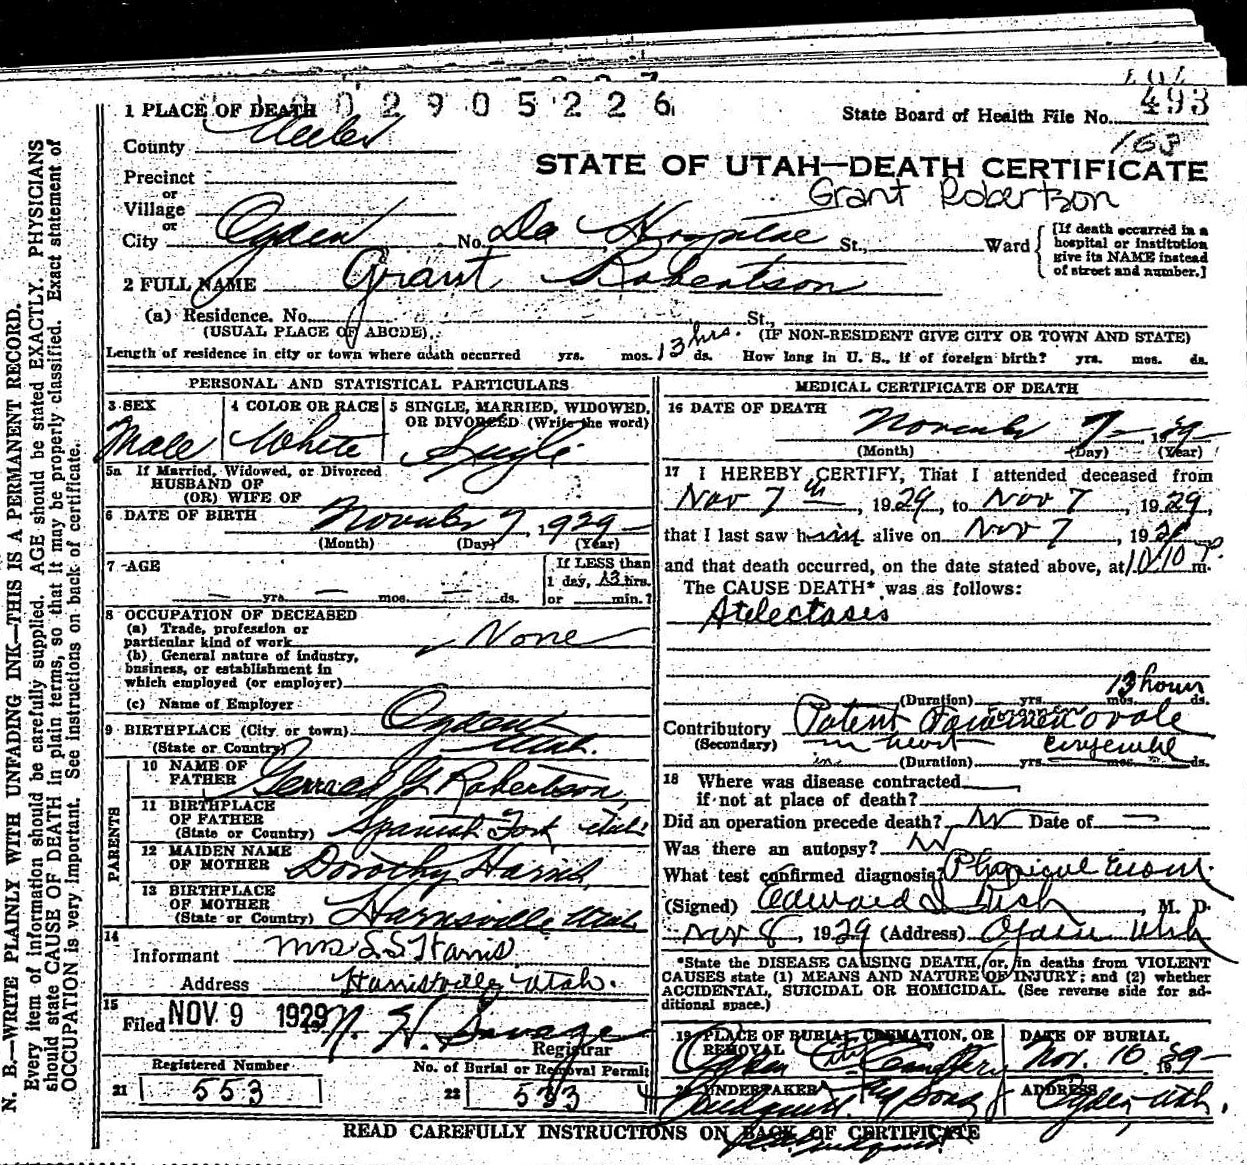 N. B.—WRITE PLAINLY WITH UNFADING INK—THIS IS A PERMANENT RECORD.
Every item of information should be carefully supplied. AGE should be stated EXACTLY. PHYSICIANS
should state CAUSE OF DEATH in plain terms, so that it may be properly classified. Exact statement of
OCCUPATION is very important. See instructions on back of certificate.
2905226
State Board of Health File No. 493
163
STATE OF UTAH—DEATH CERTIFICATE
Grant Robertson
1 PLACE OF DEATH
County Weber
Precinct
or
Village
or
City Ogden No. Dee Hospital St., Ward
[If death occurred in a
hospital or institution
give its NAME instead
of street and number.]
2 FULL NAME Grant Robertson
(a) Residence. No. St.,
(USUAL PLACE OF ABODE) (IF NON-RESIDENT GIVE CITY OR TOWN AND STATE)
Length of residence in city or town where death occurred yrs. mos. 13 hrs. ds. How long in U. S., if of foreign birth? yrs. mos. ds.
PERSONAL AND STATISTICAL PARTICULARS
3 SEX
Male
4 COLOR OR RACE
White
5 SINGLE, MARRIED, WIDOWED,
OR DIVORCED (Write the word)
Single
5a If Married, Widowed, or Divorced
HUSBAND OF
(OR) WIFE OF
6 DATE OF BIRTH November 7, 1929
(Month) (Day) (Year)
7 AGE
— yrs. — mos. — ds.
If LESS than
1 day, 13 hrs.
or min.?
8 OCCUPATION OF DECEASED
(a) Trade, profession or
particular kind of work None
(b) General nature of industry,
business, or establishment in
which employed (or employer)
(c) Name of Employer
9 BIRTHPLACE (City or town) Ogden
(State or Country) Utah.
PARENTS
10 NAME OF
FATHER G. Robertson
11 BIRTHPLACE
OF FATHER
(State or Country) Spanish Fork Utah
12 MAIDEN NAME
OF MOTHER Dorothy Harris
13 BIRTHPLACE
OF MOTHER
(State or Country) Harrisville Utah
14
Informant Mrs L S Harris
Address Harrisville Utah.
15
Filed NOV 9 1929 Savage
Registrar
Registered Number
21 553
No. of Burial or Removal Permit
22 533
MEDICAL CERTIFICATE OF DEATH
16 DATE OF DEATH
November 7— 1929—
(Month) (Day) (Year)
17 I HEREBY CERTIFY, That I attended deceased from
Nov 7th, 1929, to Nov 7, 1929,
that I last saw him alive on Nov 7, 1929
and that death occurred, on the date stated above, at 10/10 P. m.
The CAUSE DEATH* was as follows:
Atelectasis
13 hours
(Duration) yrs. mos. ds.
Contributory Patent Foramen ovale
(Secondary) in heart
(Duration) yrs. mos. ds.
18 Where was disease contracted
if not at place of death?
Did an operation precede death? No Date of —
Was there an autopsy? No
What test confirmed diagnosis? Physical Exam.
(Signed) Edward I Rich, M. D.
Nov 8, 1929 (Address) Ogden Utah
*State the DISEASE CAUSING DEATH, or, in deaths from VIOLENT
CAUSES state (1) MEANS AND NATURE OF INJURY; and (2) whether
ACCIDENTAL, SUICIDAL OR HOMICIDAL. (See reverse side for ad-
ditional space.)
19 PLACE OF BURIAL, CREMATION, OR
REMOVAL
Ogden City Cemetery
DATE OF BURIAL
Nov. 10 1929—
20 UNDERTAKER
Sons
ADDRESS
Ogden, Utah.
READ CAREFULLY INSTRUCTIONS ON BACK OF CERTIFICATE